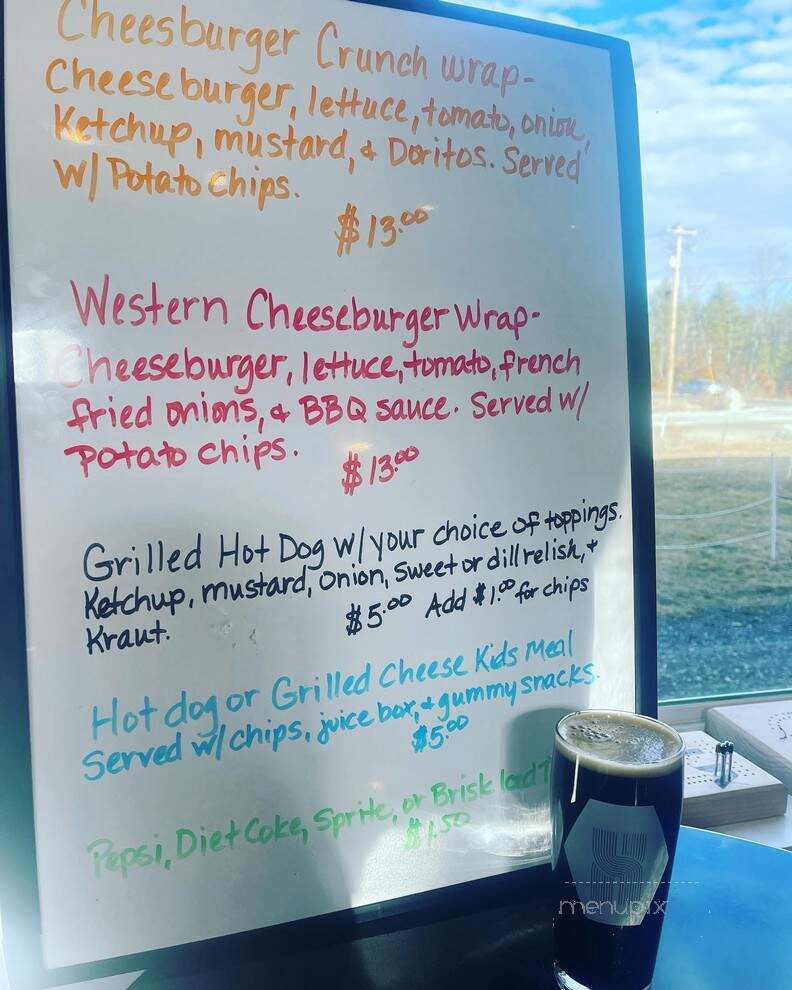 Cheesburger Crunch wrap-
Cheeseburger, lettuce, tomato, onion,
Ketchup, mustard, & Doritos. Served
w/ Potato chips.
$13.00
Western Cheeseburger Wrap-
Cheeseburger, lettuce, tomato, french
fried onions, & BBQ sauce. Served w/
Potato chips.
$13.00
Grilled Hot Dog w/ your choice of toppings.
Ketchup, mustard, onion, sweet or dill relish, &
Kraut.
$5.00 Add $1.00 for chips
Hot dog or Grilled Cheese Kids Meal
Served w/ chips, juice box, & gummy snacks.
$5.00
Pepsi, Diet Coke, Sprite, or Brisk Iced T
$1.50
menupix